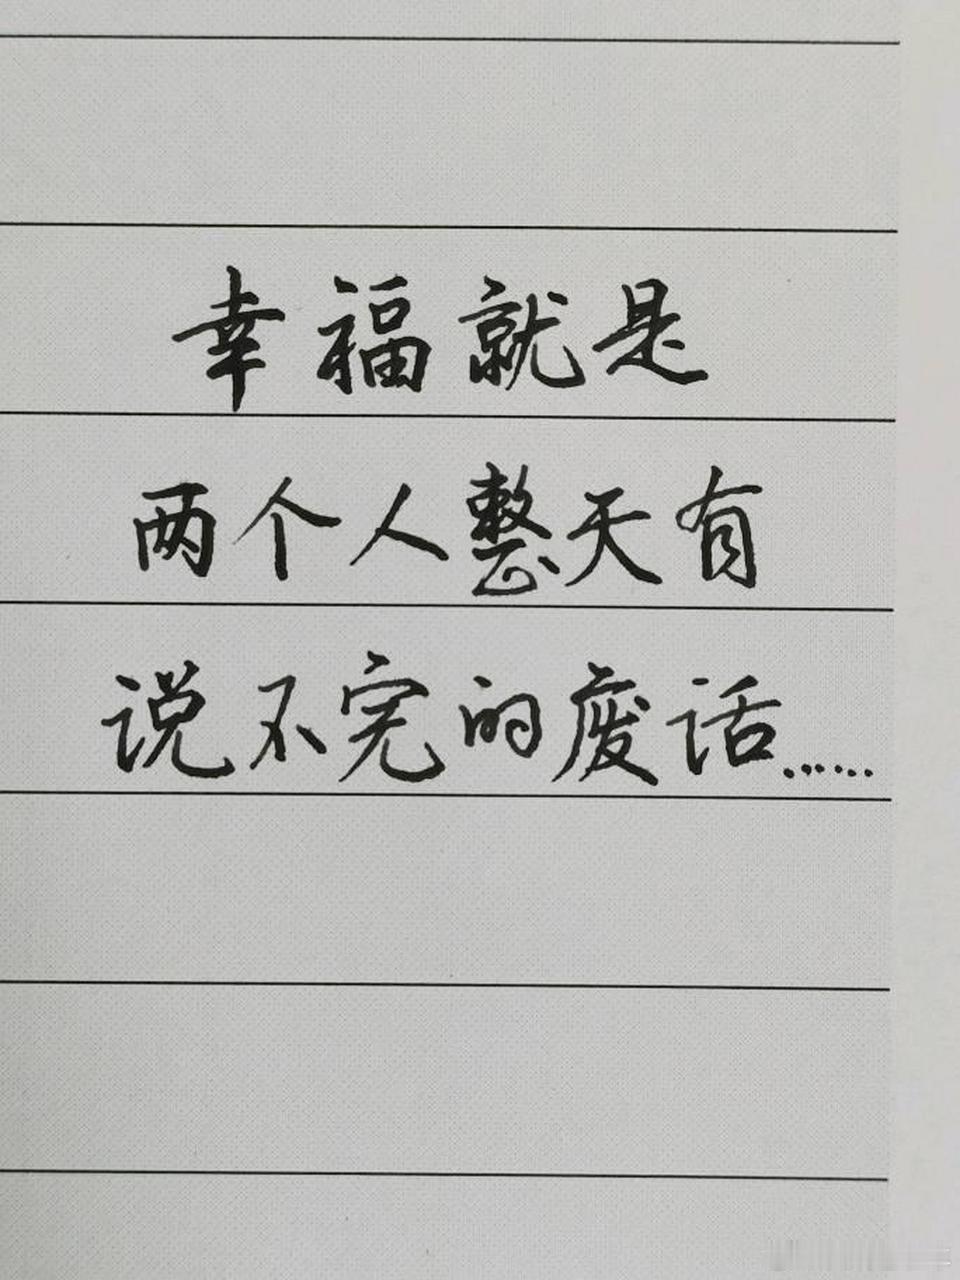 幸福就是
两个人整天有
说不完的废话……